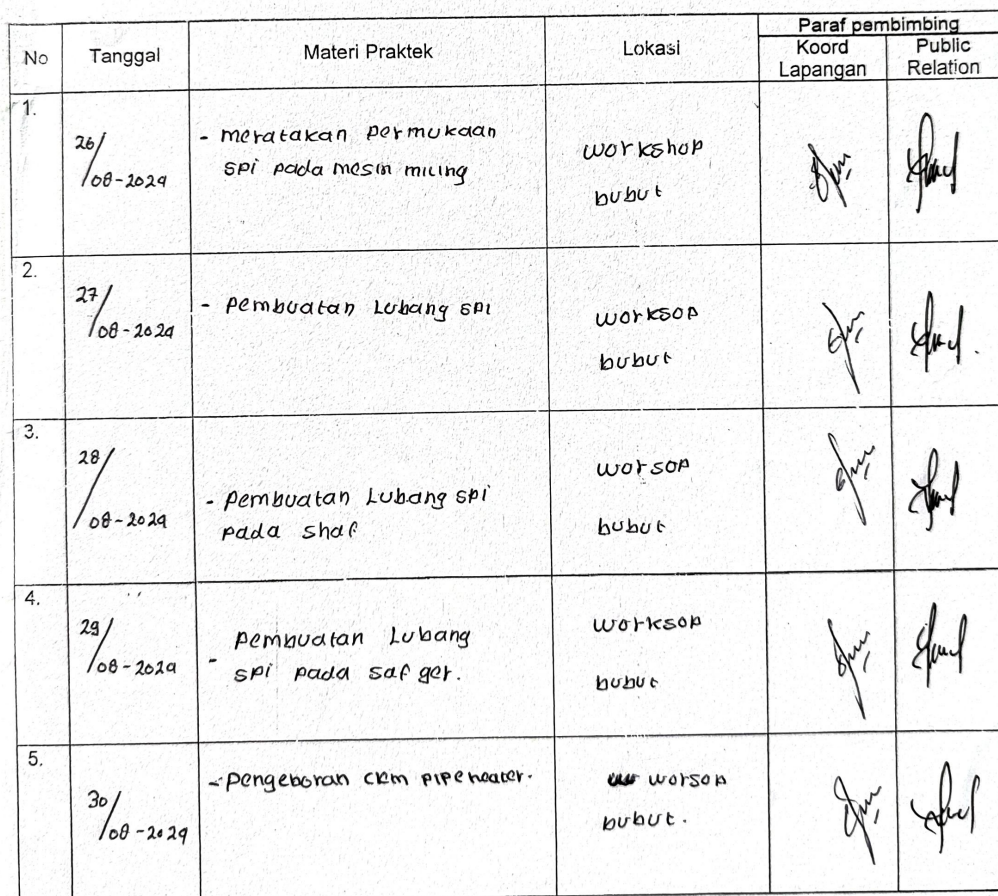 No Tanggal Materi Praktek Lokasi Paraf pembimbing
Koord Lapangan Public Relation
1.
26/08-2024
- meratakan permukaan
spi pada mesin miling
workshop
bubut
2.
27/08-2024
- pembuatan Lubang spi
worksop
bubut
3.
28/08-2024
- pembuatan Lubang spi
pada shaf
worsop
bubut
4.
29/08-2024
- pembuatan Lubang
spi pada saf ger.
worksop
bubut
5.
30/08-2024
- pengeboran pipe heater.
worsop
bubut.